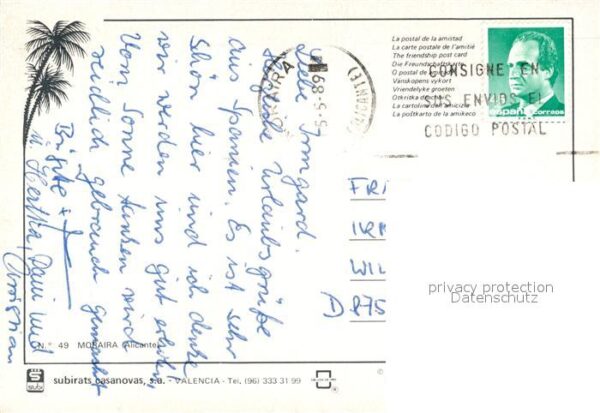 La postal de la amistad
La carte postale de l'amitié
The friendship post card
Die Freundschaftskarte
O postal de
Vänskapens vykort
Vriendelyke groeten
Cartolina dell'amicizia
La poŝtkarto de la amikeco
CONSIGNE EN
SUS ENVIOS EL
CODIGO POSTAL
españa correos
(ALICANTE)
-5-5-89
Liebe Irmgard.
Herzliche Urlaubsgrüße
aus Spanien. Es ist sehr
schön hier und ich denke
wir werden uns gut erholen,
Vom Sonne tanken wird
reichlich gebrauch gemacht
Brigitte +
u. Hertha, Dani und
Christian
FR
IRM
WIL
D 875
privacy protection
Datenschutz
N.º 49 MORAIRA (Alicante)
subi
subirats casanovas, s.a. - VALENCIA - Tel. (96) 333 31 99